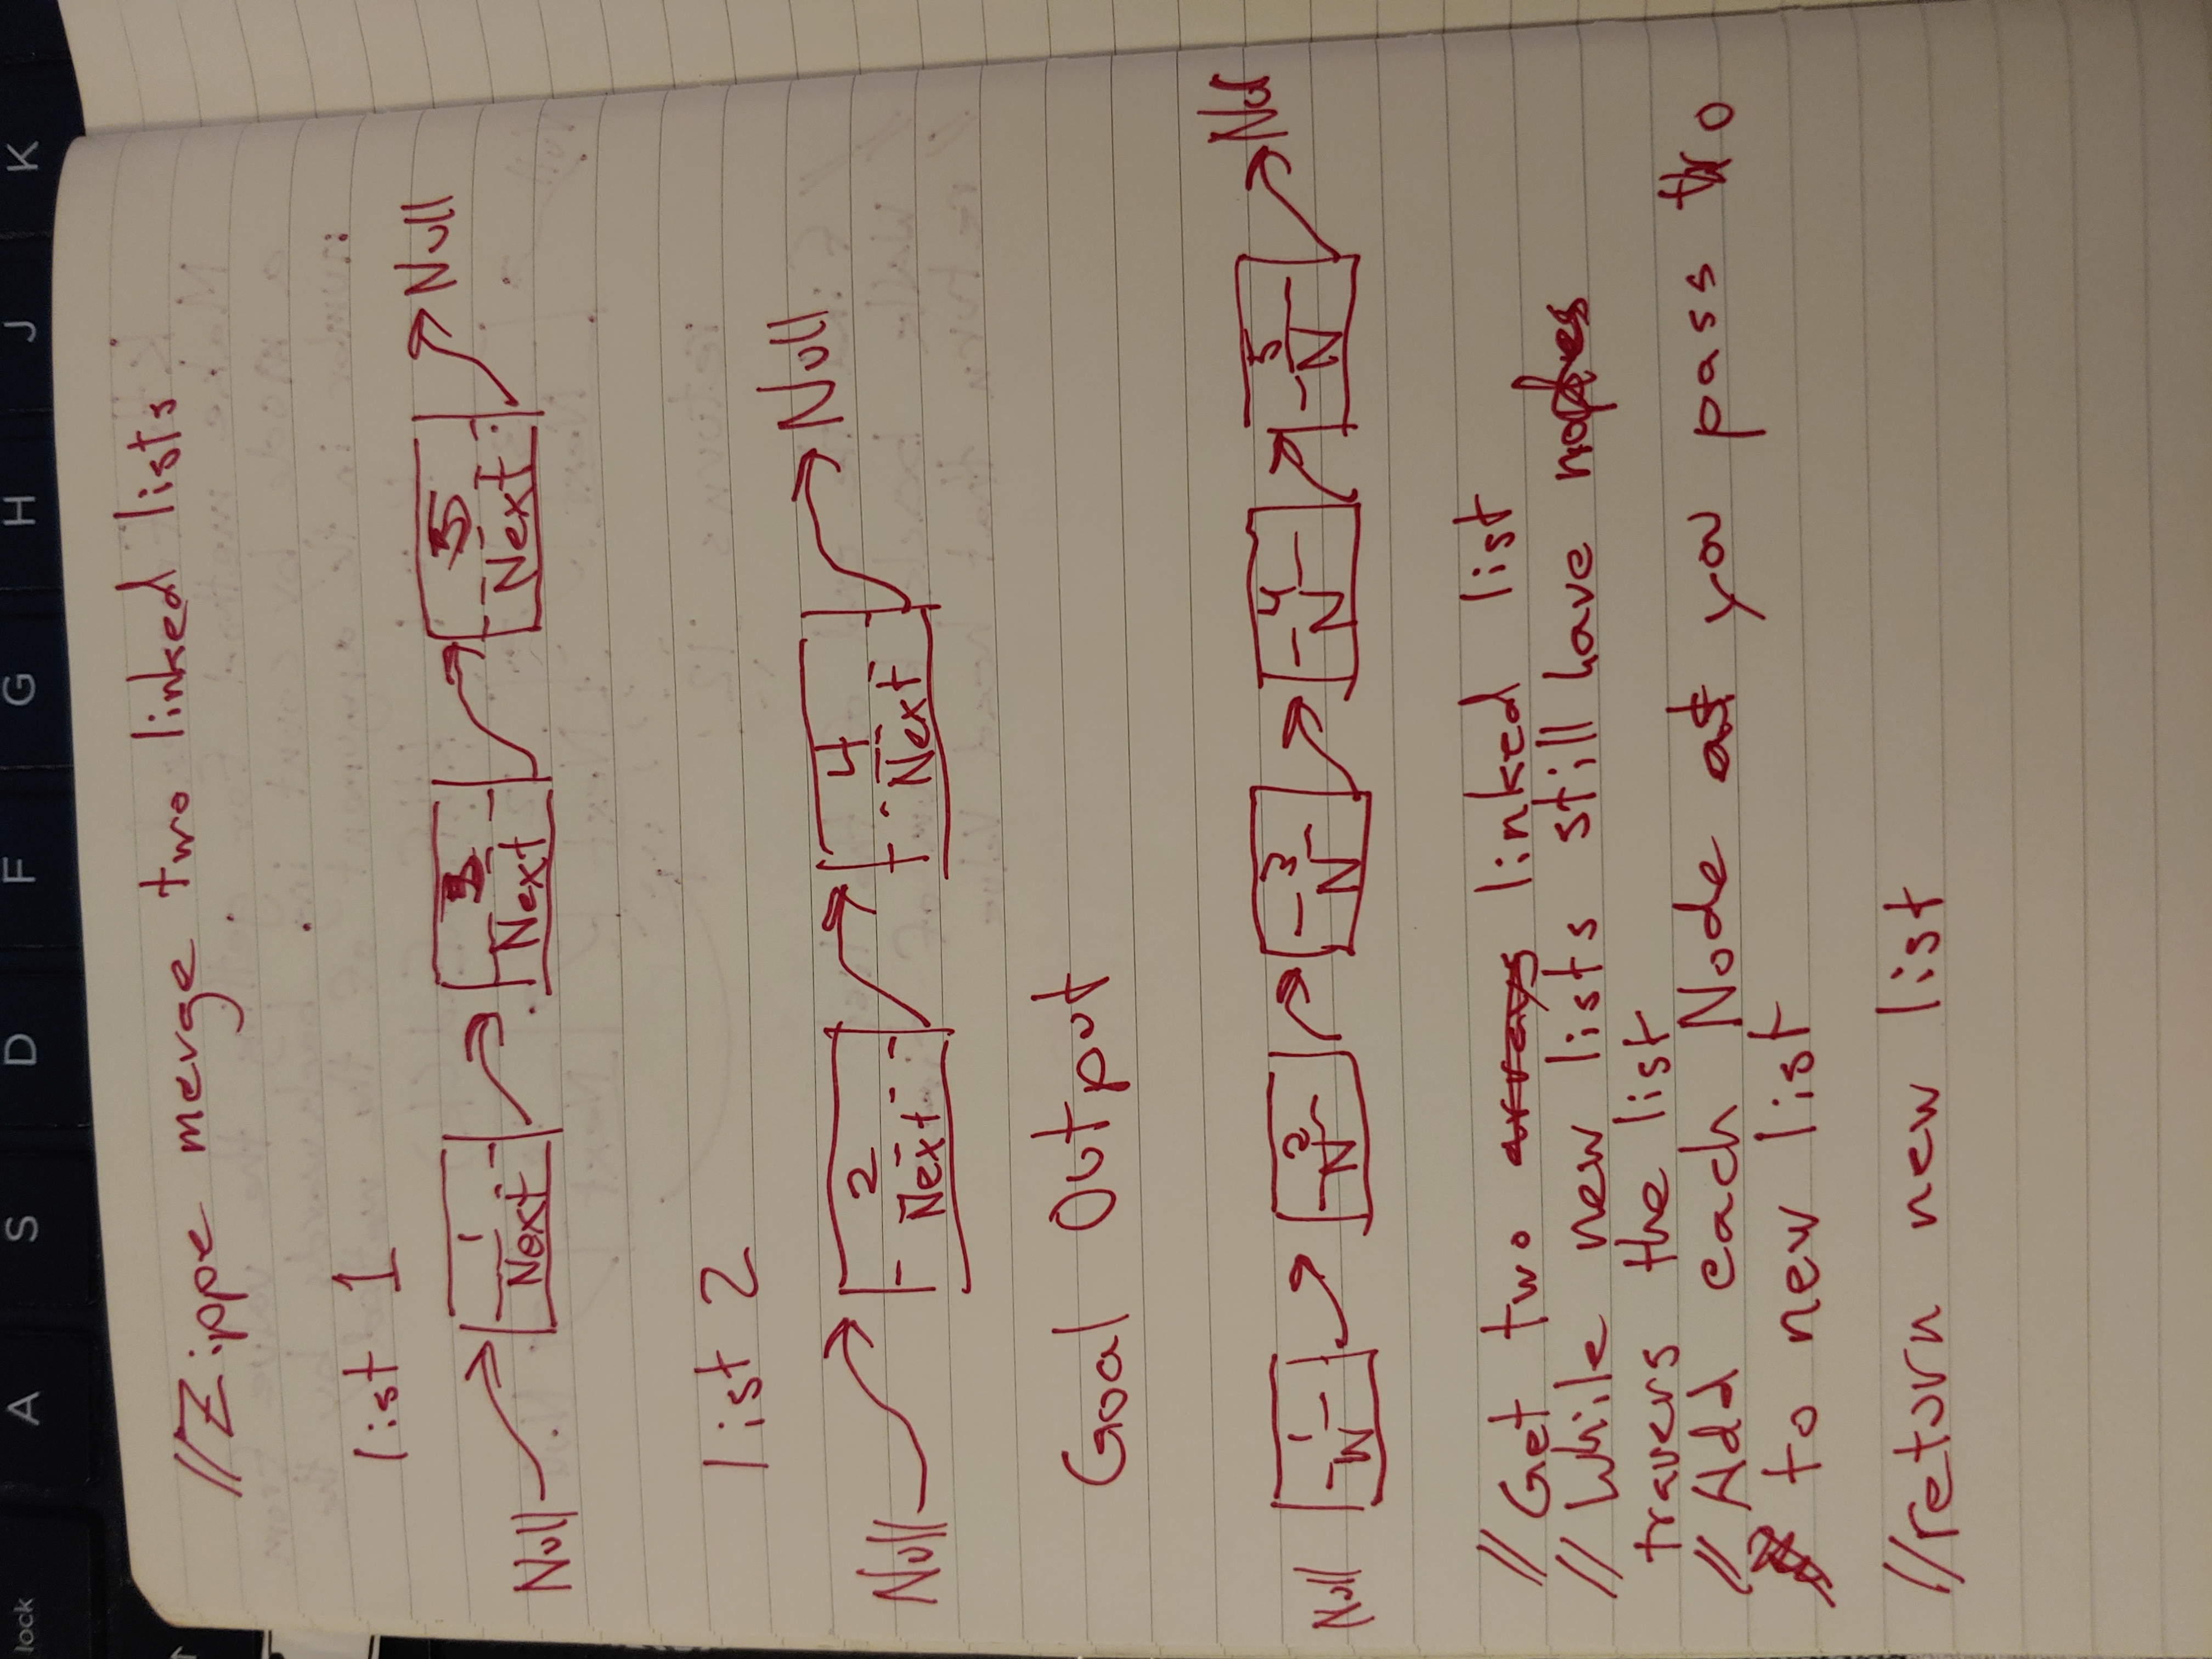 //Zippe merge two linked lists
list 1
Null 1 Next 3 Next 5 Next Null
list 2
Null 2 Next 4 Next Null
Goal Output
Null 1 N 2 N 3 N 4 N 5 N Nul
// Get two arrays linked list
// While new lists still have nodes
travers the list
// Add each Node as you pass to
to new list
//return new list
lock A S D F G H J K